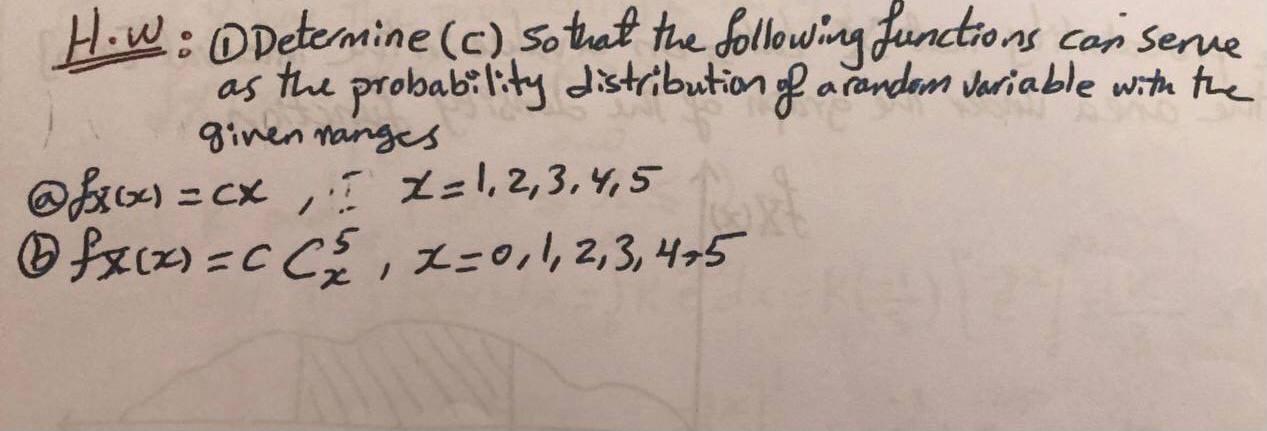 H.W: ① Determine (c) so that the following functions can serve
as the probability distribution of a random variable with the
given ranges
ⓐ fX(x) = cx , x = 1, 2, 3, 4, 5
ⓑ fX(x) = c C⁵ₓ , x = 0, 1, 2, 3, 4, 5